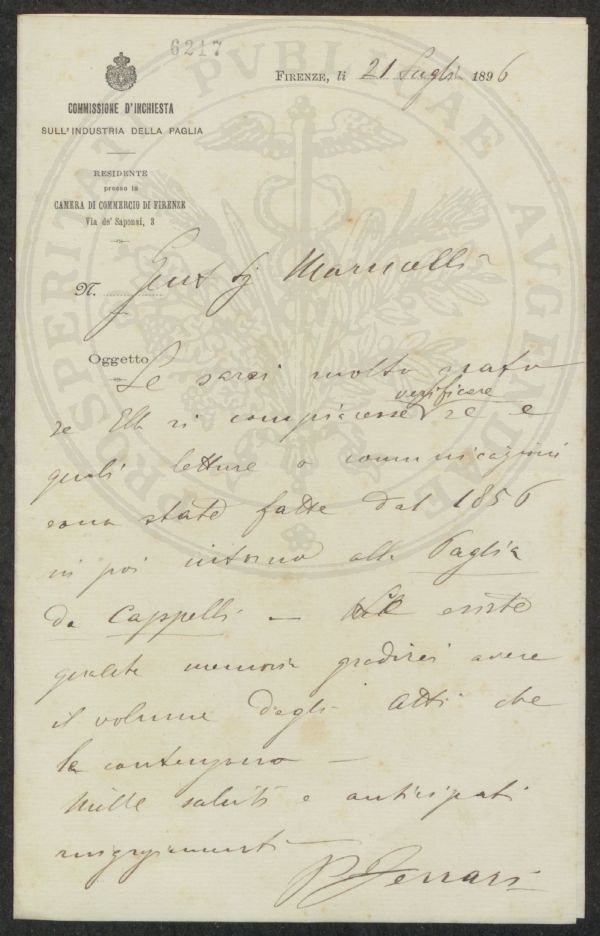 6217
FIRENZE, li 21 Luglio 1896
COMMISSIONE D'INCHIESTA
SULL'INDUSTRIA DELLA PAGLIA
RESIDENTE
presso la
CAMERA DI COMMERCIO DI FIRENZE
Via de' Saponai, 3
PROSPERITATI PVBLICAE AVGENDAE
N.
Gent Sig Marucelli
Oggetto
Le sarei molto grato
se Ella si compiacesse verificare se e
quali letture o comunicazioni
sono state fatte dal 1856
in poi intorno alla Paglia
da Cappelli — Se esiste
qualche memoria gradirei avere
il volume degli Atti che
la contengono —
Mille saluti e anticipati
ringraziamenti —
P Ferrari